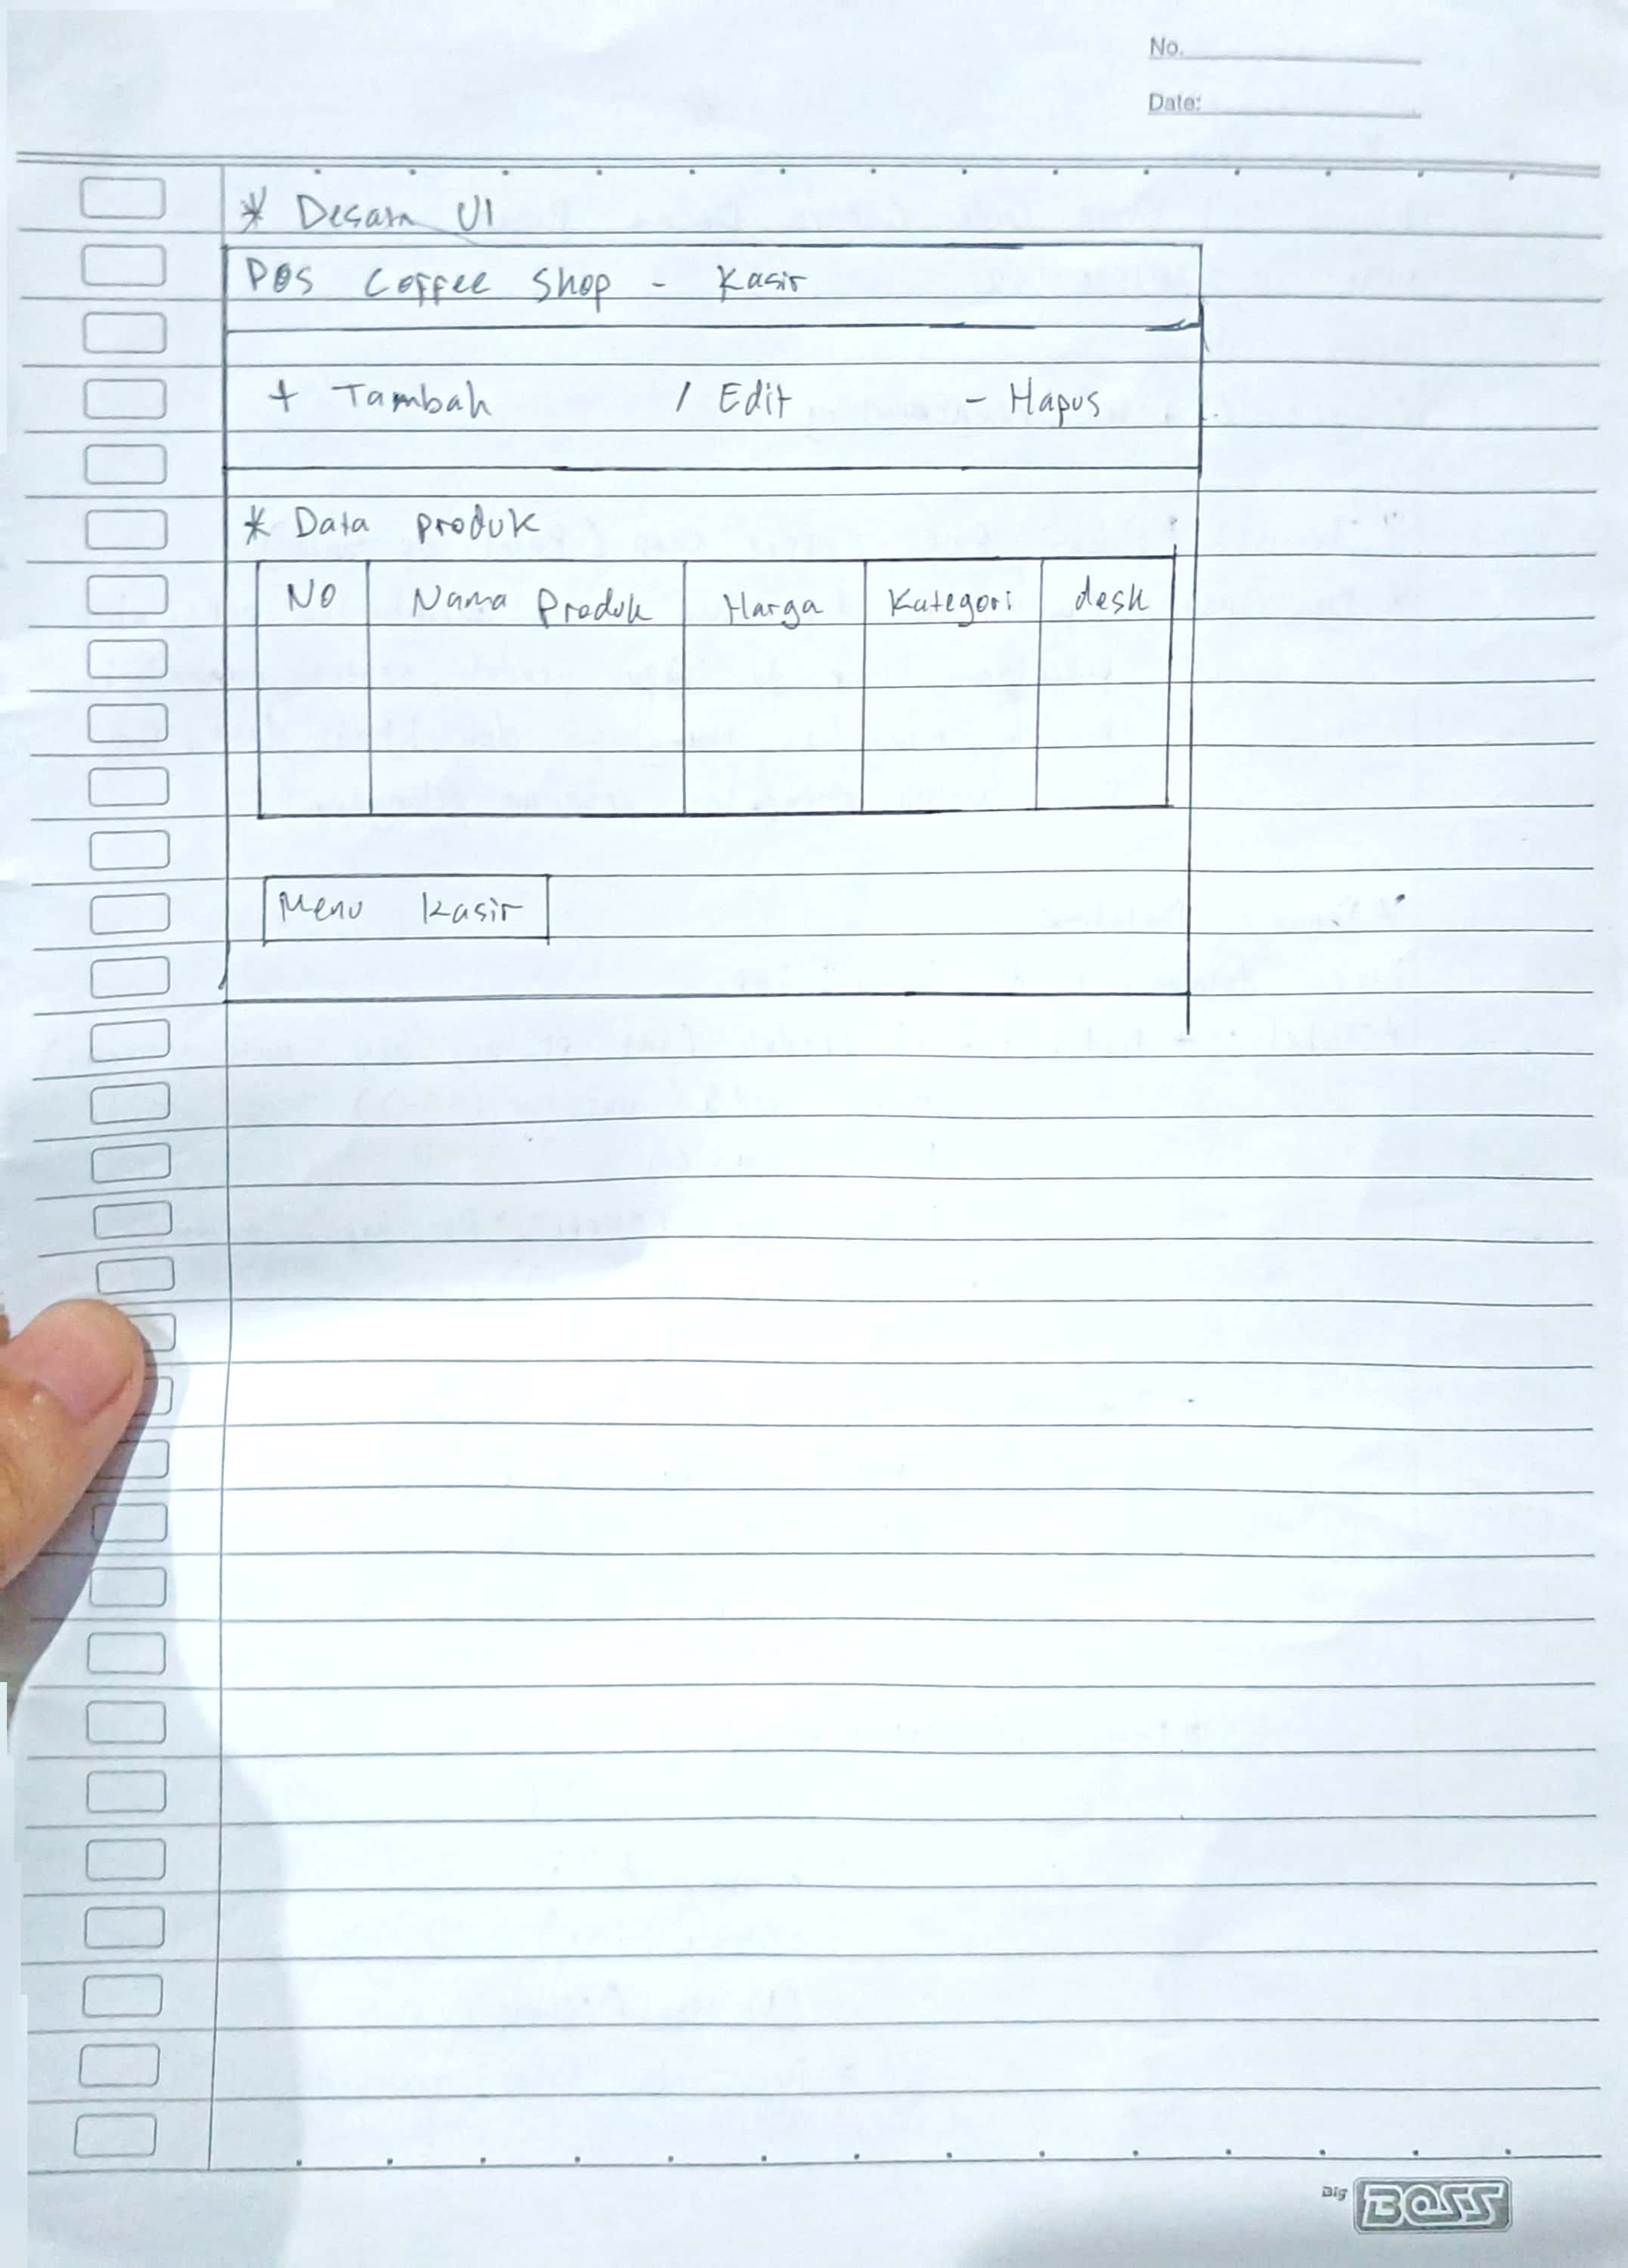 No.
Date:
* Desain UI
POS Coffee Shop - Kasir
+ Tambah / Edit - Hapus
* Data produk
NO Nama Produk Harga Kategori desk
Menu Kasir
Big BOSS